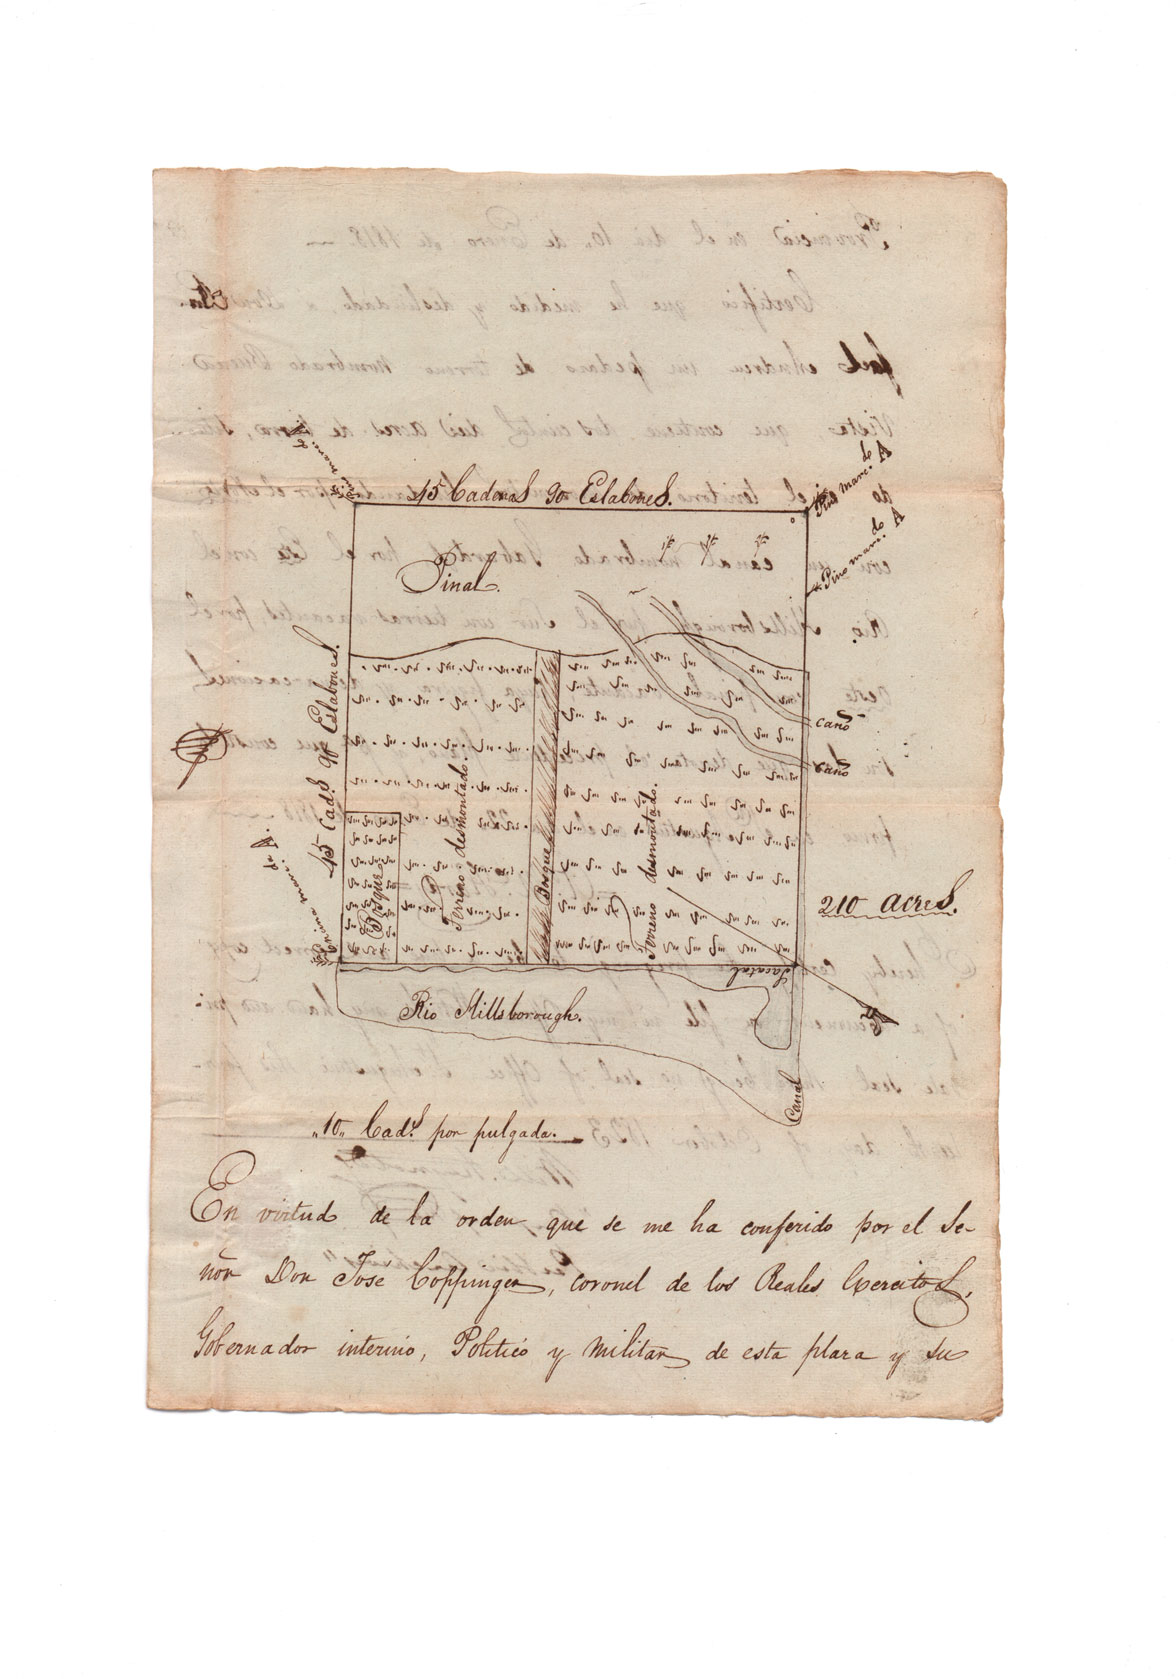 45 Cadenas 90 Eslabones.
Pino marc.do A
Pino marc.do A
Pinal.
45 Cad.s 90 Eslabones.
caño
caño
Terreno desmontado.
Bosque
Terreno desmontado.
Bosque
210 acres.
Sacatal
Rio Hillsborough.
Canal
"10" Cad.s por pulgada.
En virtud de la orden que se me ha conferido por el Se-
ñor Don Jose Coppinger, coronel de los Reales Exercitos,
Gobernador interino, Politico y Militar de esta plaza y su